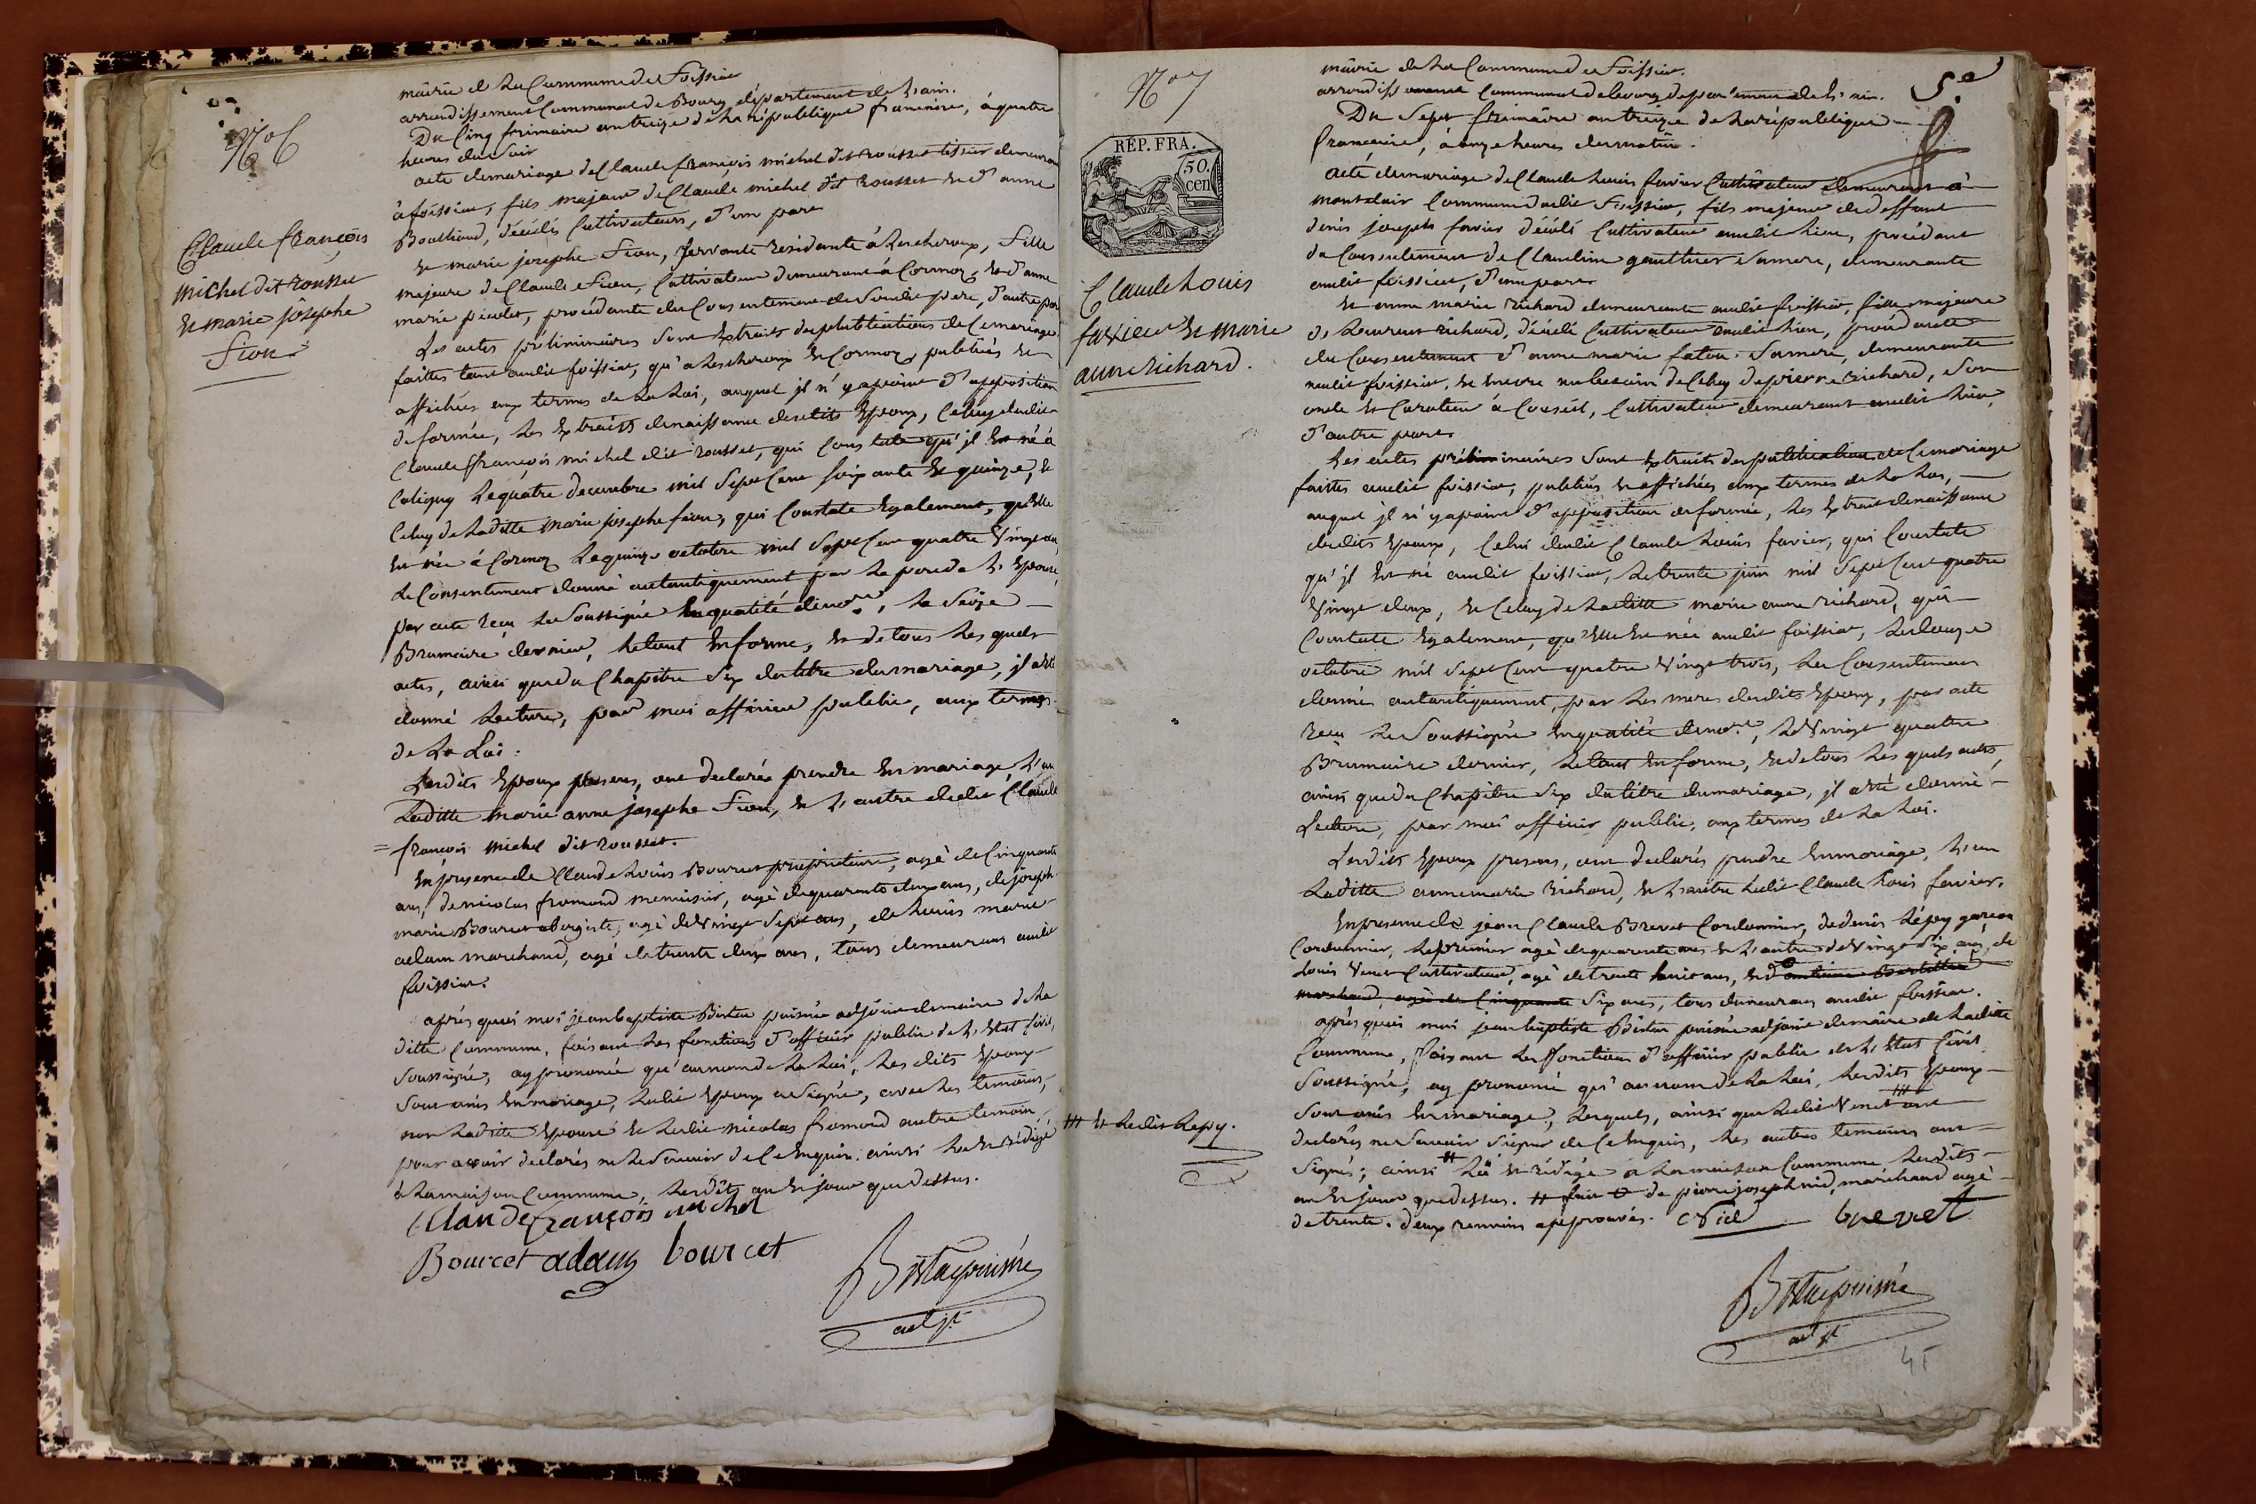 N.o 6
Claude françois
michel dit rousset
Et marie josephe
fion
mairie de La Commune de foissiat
arrondissement Communal de Bourg département de L'ain.
Du Cinq frimaire an treize de La république francaise, à quatre
heures du Soir
acte de mariage de Claude françois michel dit rousset tissier demeurant
à foissiat, fils majeur de Claude michel dit Rousset et d'anne
Bouthiond, décédés Cultivateurs, d'une part
Et marie josephe fion, Servante residante à Lescheroux, fille
majeure de Claude fion, Cultivateur demeurant à Cormoz, et d'anne
marie picolet, procédante du Consentement de Son dit pere, d'autre part
Les actes préliminaires Sont Extraits des publications de Ce mariage
faittes tant audit foissiat, qu'a Lescheroux et Cormoz, publiées et
affichées aux termes de La Loi, auquel jl n'y a point d'opposition
de formée, Les Extraits de naissance desdits Epoux, Celuy dudit
Claude françois michel dit rousset, qui Constate qu'jl Est né à
Coligny Le quatre decembre mil Sept Cent soixante Et quinze, Et
Celuy de Laditte marie josephe fion, qui Constate Egalement, qu'Elle
Est née à Cormoz Le quinze octobre mil Sept Cent quatre Vingt un,
Le Consentement donné autantiquement par Le pere de L'Epouse,
par acte reçu Le Soussigné En qualité de no.re, Le Seize
Brumaire dernier, Le tout En forme, Et de tous Les quels
actes, ainsi que du Chapitre Six du titre du mariage, jl a été
donné Lecture, par moi officier public, aux termes
de La Loi.
Lesdits Epoux présens, ont declarés prendre En mariage, L'un
Laditte marie anne josephe fion, Et L'autre Ledit Claude
= françois michel dit rousset.
En presence de Claude Louis Bourcet propriétaire, agé de Cinquante
ans, de nicolas fromond menuisier, agé de quarante deux ans, de joseph
marie Bourcet obergiste, agé de Vingt Sept ans, de Louis marie
adam marchand, agé de trente deux ans, tous demeurans audit
foissiat.
aprés quoi moi jean baptiste puisné adjoint de maire de La
ditte Commune, faisant Les fonctions d'officier public de L'Etat Civil,
Soussigné, ay prononcé qu'au nom de La Loi, Les dits Epoux
Sont unis En mariage, Ledit Epoux a Signé, avec Les temoins,
non Laditte Epouse Et Ledit nicolas fromond autre temoin,
pour avoir declarés ne Le Savoir de Ce Enquis. ainsi Lu Et rédigé
à La maison Commune, Lesdits an Et jour que dessus.
Claude françois michel
Bourcet adam bourcet
puisné
adjt
N.o 7
RÉP. FRA.
50.
cen
Claude Louis
favier Et marie
anne Richard.
mairie de La Commune de foissiat.
arrondissement Communal de Bourg departement de L'ain.
5.e
Du Sept frimaire an treize de La république
francaise, à onze heures du matin.
acte de mariage de Claude Louis favier Cultivateur demeurant à
montclair Commune dudit foissiat, fils majeur de deffunt
denis joseph favier décédé Cultivateur audit Lieu, procédant
du Consentement de Claudine gauthier Sa mere, demeurante
audit foissiat, d'une part
Et anne marie Richard demeurante audit foissiat, fille majeure
de Laurent Richard, décédé Cultivateur audit Lieu, procédante
du Consentement d'anne marie Sa mere, demeurante
audit foissiat, Et Encore au besoin de Celuy de pierre Richard, Son
oncle Et Curateur à Conseil, Cultivateur demeurant audit Lieu,
d'autre part
Les actes préliminaires Sont Extraits des publications de Ce mariage
faittes audit foissiat, publiées Et affichées aux termes de La Loi,
auquel jl n'y a point d'opposition de formée, Les Extraits de naissance
desdits Epoux, Celui dudit Claude Louis favier, qui Constate
qu'jl Est né audit foissiat, Le trente juin mil Sept Cent quatre
Vingt deux, Et Celuy de Laditte marie anne Richard, qui
Constate Egalement, qu'Elle Est née audit foissiat, Le douze
octobre mil Sept Cent quatre Vingt trois, Le Consentement
donné autantiquement, par Les meres desdits Epoux, par acte
reçu Le Soussigné En qualité de no.re, Le Vingt quatre
Brumaire dernier, Le tout En forme, Et de tous Les quels actes,
ainsi que du Chapitre Six du titre du mariage, jl a été donné
Lecture, par moi officier public, aux termes de La Loi.
Lesdits Epoux presens, ont declarés prendre En mariage, L'un
Laditte anne marie Richard, Et L'autre Ledit Claude Louis favier.
En presence de jean Claude Brevet Cordonnier, de denis Lépy garçon
Cordonnier, Le premier agé de quarante ans Et L'autre de Vingt Six ans, de
Louis Venet Cultivateur, agé de trente huit ans, Et d'antoine
marchand, agé de Cinquante Six ans, tous demeurans audit foissiat.
aprés quoi moi jean baptiste puisné adjoint de maire de Laditte
Commune, faisant Les fonctions d'officier public de L'Etat Civil
Soussigné, ay prononcé qu'au nom de La Loi, Lesdits Epoux
Sont unis En mariage, Lesquels, ainsi que Ledit Venet # ont
declarés ne Savoir Signer de Ce Enquis, Les autres temoins ont
Signés; ainsi Lu Et rédigé à La maison Commune Lesdits
an Et jour que dessus. # de pierre joseph nid, marchand agé
de trente. deux renvois approuvés. Nid brevet
# Et Ledit Lepy.
puisné
adjt
45